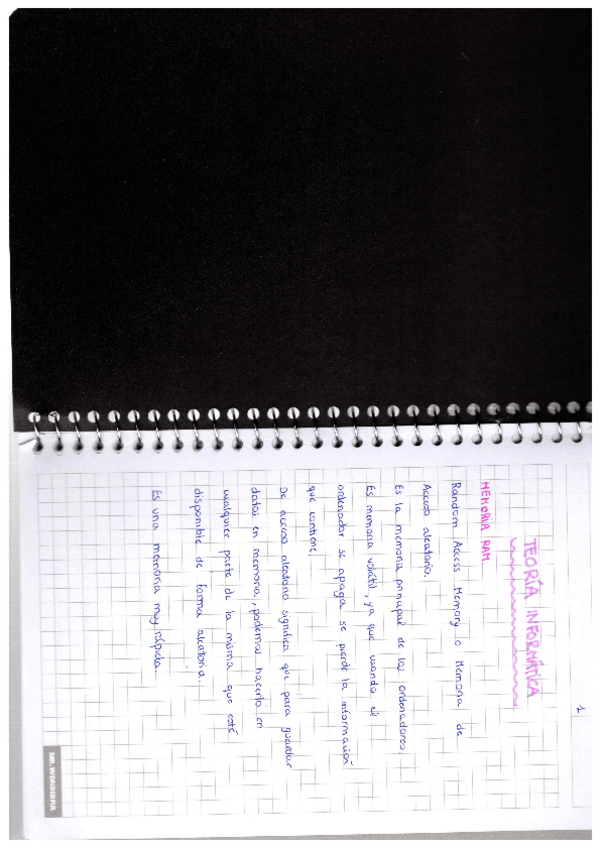 1
TEORÍA INFORMÁTICA
MEMORIA RAM
Random Access Memory o Memoria de
Acceso aleatorio.
Es la memoria principal de los ordenadores
Es memoria volátil, ya que cuando el
ordenador se apaga se pierde la información
que contiene.
De acceso aleatorio significa que para guardar
datos en memoria, podemos hacerlo en
cualquier parte de la misma que esté
disponible de forma aleatoria.
Es una memoria muy rápida
MR. WONDERFUL